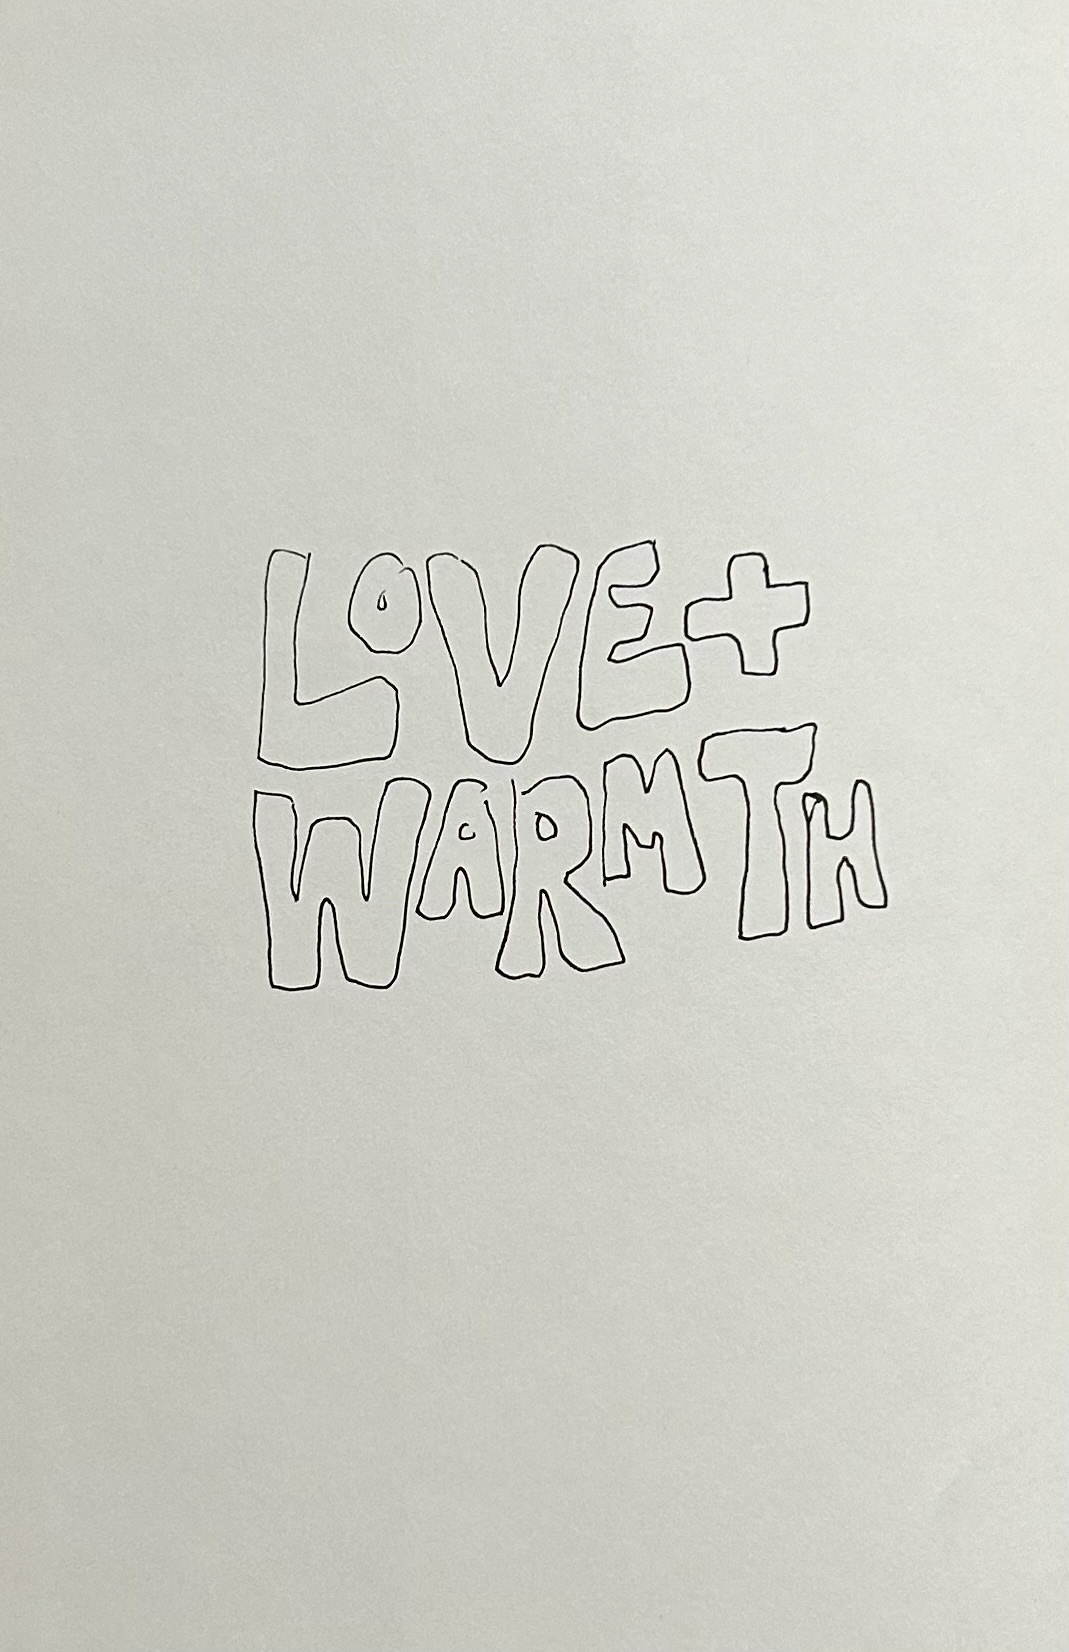 LOVE+
WARMTH